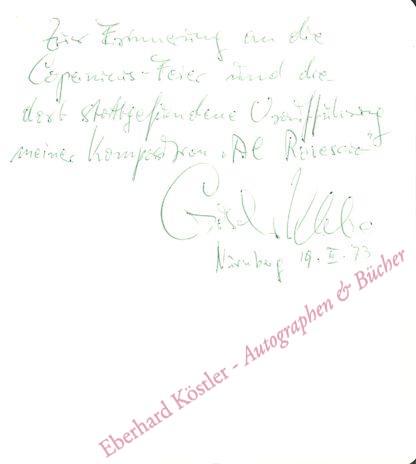 Zur Erinnerung an die
Copernicus-Feier und die
dort stattgefundene Uraufführung
meiner Komposition „Al Rovescio“
Giselher Klebe
Nürnberg 19. II. 73
Eberhard Köstler - Autographen & Bücher